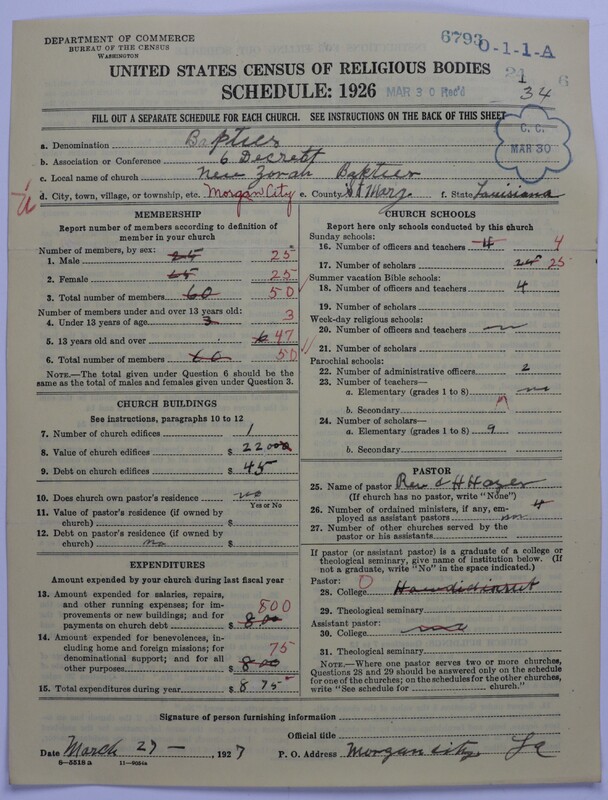 DEPARTMENT OF COMMERCE
BUREAU OF THE CENSUS
WASHINGTON
6793 0-1-1-A
UNITED STATES CENSUS OF RELIGIOUS BODIES
SCHEDULE: 1926
MAR 30 Rec'd
1
34
FILL OUT A SEPARATE SCHEDULE FOR EACH CHURCH. SEE INSTRUCTIONS ON THE BACK OF THIS SHEET
C. C.
MAR 30
a. Denomination
b. Association or Conference 6
c. Local name of church New Zorah
d. City, town, village, or township, etc. Morgan City e. County St Mary f. State Louisiana
MEMBERSHIP
Report number of members according to definition of
member in your church
Number of members, by sex:
1. Male 25
2. Female 25
3. Total number of members 60 50
Number of members under and over 13 years old:
4. Under 13 years of age 3 3
5. 13 years old and over 6 47
6. Total number of members 60 50
NOTE.—The total given under Question 6 should be
the same as the total of males and females given under Question 3.
CHURCH BUILDINGS
See instructions, paragraphs 10 to 12
7. Number of church edifices 1
8. Value of church edifices $ 2200
9. Debt on church edifices $ 45
10. Does church own pastor's residence no
Yes or No
11. Value of pastor's residence (if owned by
church) $
12. Debt on pastor's residence (if owned by
church) no $
EXPENDITURES
Amount expended by your church during last fiscal year
13. Amount expended for salaries, repairs,
and other running expenses; for im-
provements or new buildings; and for
payments on church debt $ 800 800
14. Amount expended for benevolences, in-
cluding home and foreign missions; for
denominational support; and for all
other purposes $ 800 75
15. Total expenditures during year $ 875
CHURCH SCHOOLS
Report here only schools conducted by this church
Sunday schools:
16. Number of officers and teachers 4 4
17. Number of scholars 25 25
Summer vacation Bible schools:
18. Number of officers and teachers 4
19. Number of scholars
Week-day religious schools:
20. Number of officers and teachers no
21. Number of scholars
Parochial schools:
22. Number of administrative officers 2
23. Number of teachers—
a. Elementary (grades 1 to 8) no
b. Secondary
24. Number of scholars—
a. Elementary (grades 1 to 8) 9
b. Secondary
PASTOR
25. Name of pastor Rev
(If church has no pastor, write "None")
26. Number of ordained ministers, if any, em-
ployed as assistant pastors 4
27. Number of other churches served by the
pastor or his assistants
If pastor (or assistant pastor) is a graduate of a college or
theological seminary, give name of institution below. (If
not a graduate, write "No" in the space indicated.)
Pastor: 0
28. College
29. Theological seminary
Assistant pastor:
30. College
31. Theological seminary
NOTE.—Where one pastor serves two or more churches,
Questions 28 and 29 should be answered only on the schedule
for one of the churches; on the schedules for the other churches,
write "See schedule for church."
Signature of person furnishing information
Official title
Date March 27 —, 1927 P. O. Address Morgan City La
8—5518 a 11—9064a